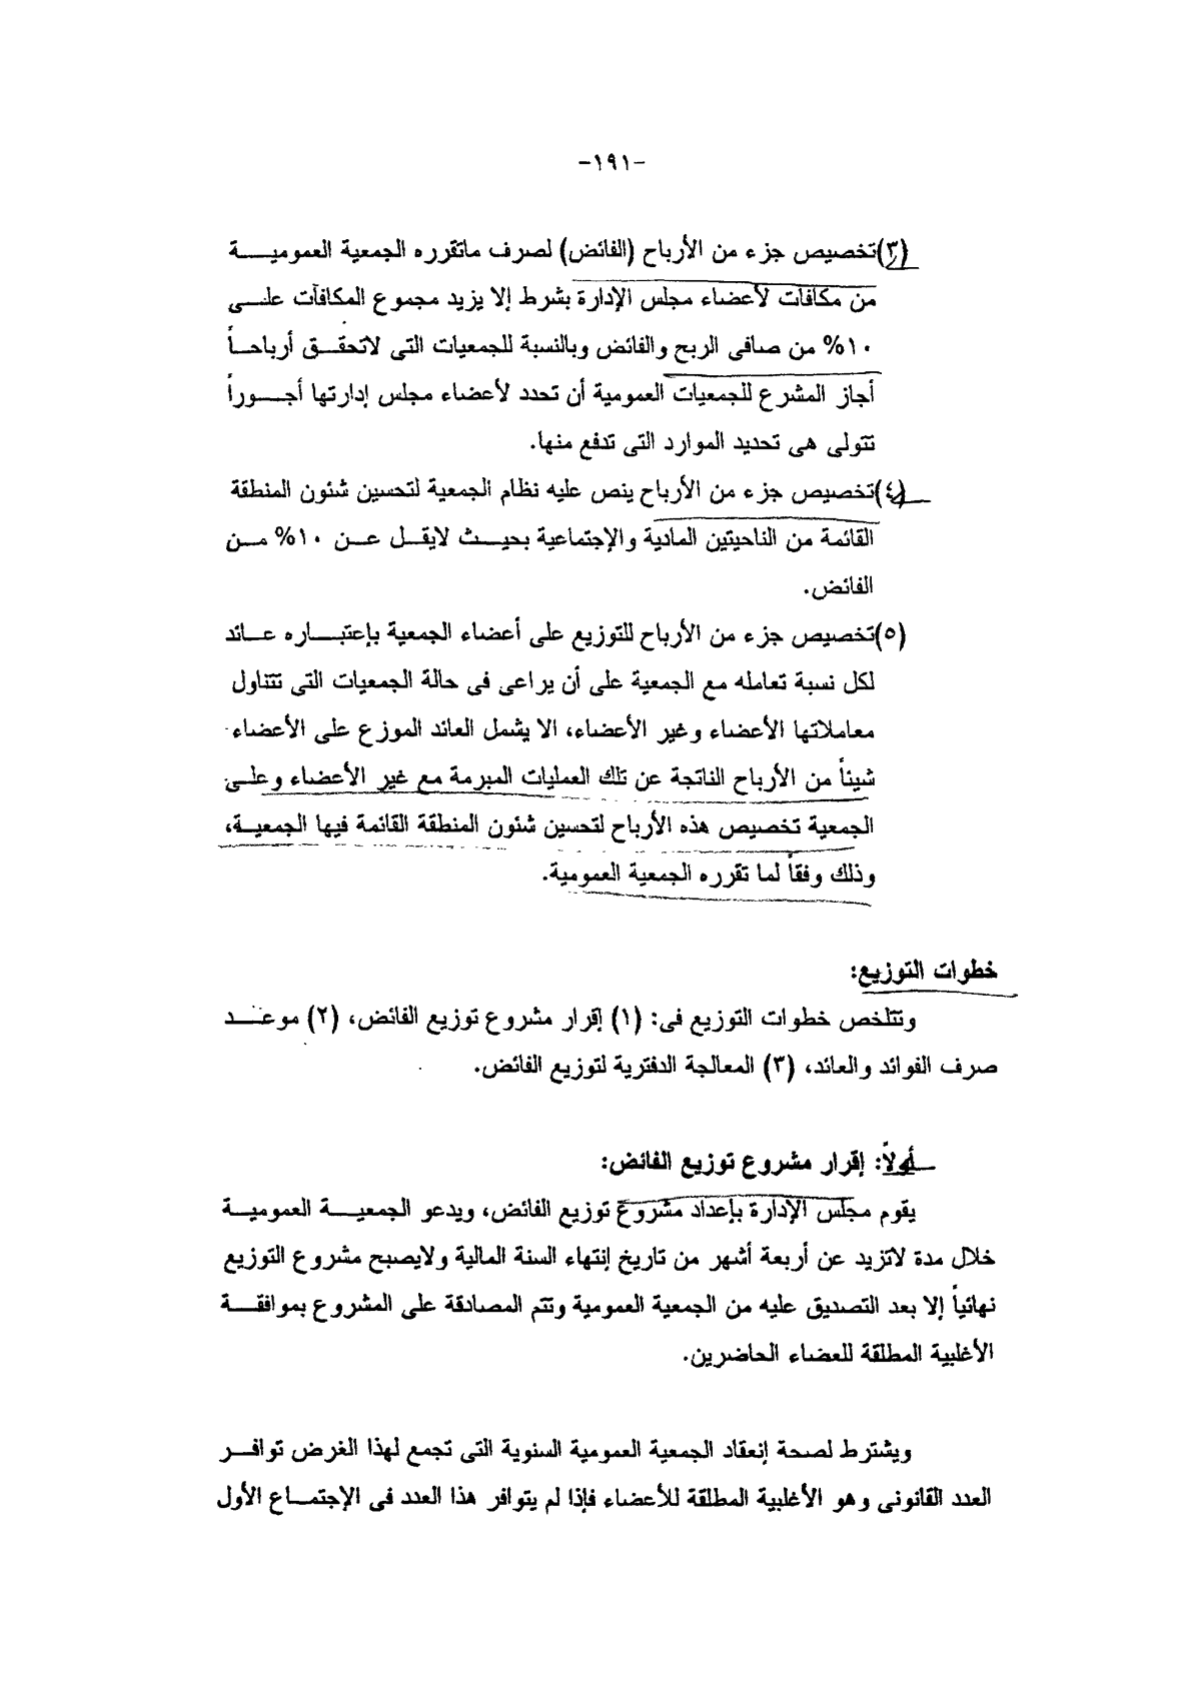 -١٩١-
(٣)تخصيص جزء من الأرباح (الفائض) لصرف ماتقرره الجمعية العمومية
من مكافات لأعضاء مجلس الإدارة بشرط إلا يزيد مجموع المكافآت على
١٠% من صافى الربح والفائض وبالنسبة للجمعيات التى لاتحقق أرباحاً
أجاز المشرع للجمعيات العمومية أن تحدد لأعضاء مجلس إدارتها أجوراً
تتولى هى تحديد الموارد التى تدفع منها.
(٤)تخصيص جزء من الأرباح ينص عليه نظام الجمعية لتحسين شئون المنطقة
القائمة من الناحيتين المادية والإجتماعية بحيث لايقل عن ١٠% من
الفائض.
(٥)تخصيص جزء من الأرباح للتوزيع على أعضاء الجمعية بإعتباره عائد
لكل نسبة تعامله مع الجمعية على أن يراعى فى حالة الجمعيات التى تتناول
معاملاتها الأعضاء وغير الأعضاء، الا يشمل العائد الموزع على الأعضاء
شيئاً من الأرباح الناتجة عن تلك العمليات المبرمة مع غير الأعضاء وعلى
الجمعية تخصيص هذه الأرباح لتحسين شئون المنطقة القائمة فيها الجمعية،
وذلك وفقاً لما تقرره الجمعية العمومية.
خطوات التوزيع:
وتتلخص خطوات التوزيع فى: (١) إقرار مشروع توزيع الفائض، (٢) موعد
صرف الفوائد والعائد، (٣) المعالجة الدفترية لتوزيع الفائض.
أولاً: إقرار مشروع توزيع الفائض:
يقوم مجلس الإدارة بإعداد مشروع توزيع الفائض، ويدعو الجمعية العمومية
خلال مدة لاتزيد عن أربعة أشهر من تاريخ إنتهاء السنة المالية ولايصبح مشروع التوزيع
نهائياً إلا بعد التصديق عليه من الجمعية العمومية وتتم المصادقة على المشروع بموافقة
الأغلبية المطلقة للعضاء الحاضرين.
ويشترط لصحة إنعقاد الجمعية العمومية السنوية التى تجمع لهذا الغرض توافر
العدد القانونى وهو الأغلبية المطلقة للأعضاء فإذا لم يتوافر هذا العدد فى الإجتماع الأول